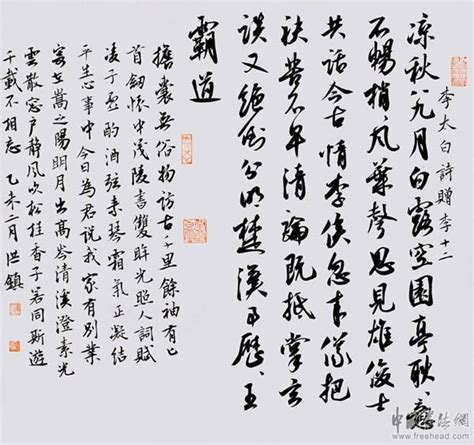 李太白詩贈李十二
凉秋八九月白露空園亭耿〻意
不暢梢〻風葉聲思見雄俊士
共話今古情李侯忽來儀把
袂苦不早清論既抵掌玄
談又絕倒分明楚漢事歷〻王
霸道
擔囊無俗物訪古千里餘袖有匕
首劒懷中茂陵書雙眸光照人詞賦
凌子虛酌酒弦素琴霜氣正凝結
平生心事中今日為君說我家有別業
寄在嵩之陽明月出高岑清溪澄素光
雲散窓户静風吹松桂香子若同斯遊
千載不相忘 乙未二月 洪鎮
www.freehead.com